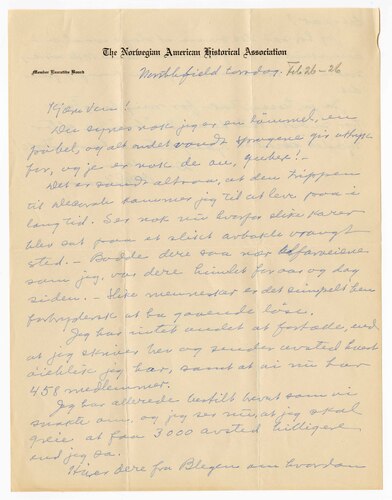 The Norwegian American Historical Association
Member Executive Board
Northfield torsdag. Feb 26-26
Kjære ven!
Du synes nok jeg er en tømmel, en
pøbel, og alt andet vondt sprogene gir uttryk
for, og jeg er nok de au, gubei!-
Det er sandt altsaa, at den trippen
til kommer jeg til at leve paa i
lang tid. Ser nok nu hvorfor slike karer
blev sat paa et slikt avbakle vraangt
sted. - Bodde dere saa nær alfarveiene
som jeg, var dere hindlet for aar og dag
siden. - Slike mennesker er det simpelt hen
forbrydersk at ha gaaende løse.
Jeg har intet andet at fortælle, end
at jeg skriver brev og sender avsted hvert
øieblik jeg har, samt at vi nu har
458 medlemmer.
Jeg har allerede bestilt brevet som vi
snakte om, og jeg ser nu, at jeg skal
greie at faa 3000 avsted tidligere
end jeg sa.
Hører dere fra Blegen om hvordan